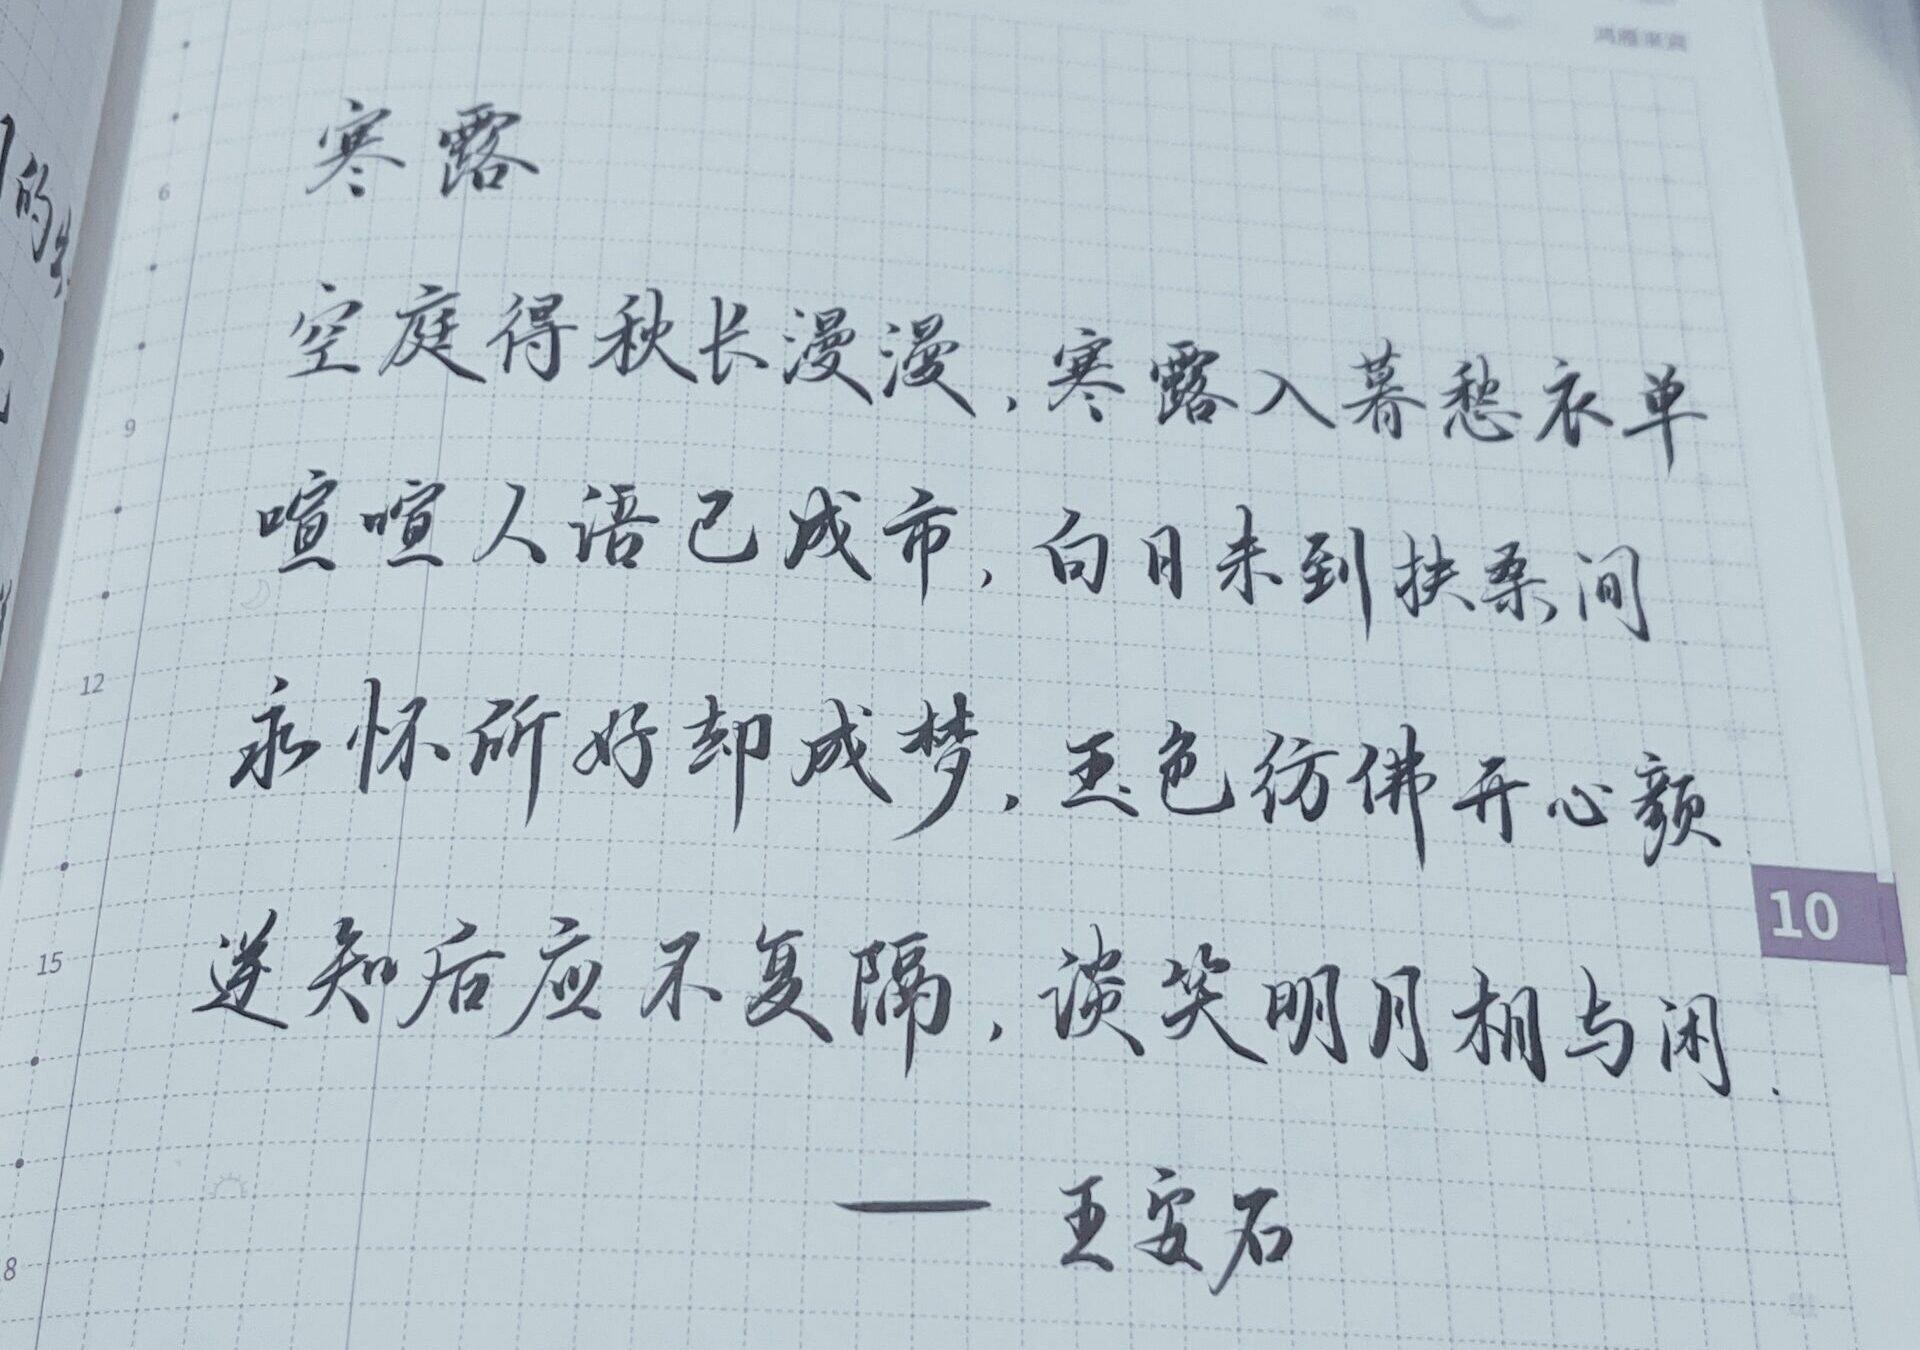 寒露
空庭得秋长漫漫，寒露入暮愁衣单
喧喧人语已成市，白日未到扶桑间
永怀所好却成梦，玉色彷佛开心颜
逆知后应不复隔，谈笑明月相与闲.
—— 王安石
6
9
9
12
15
10
的